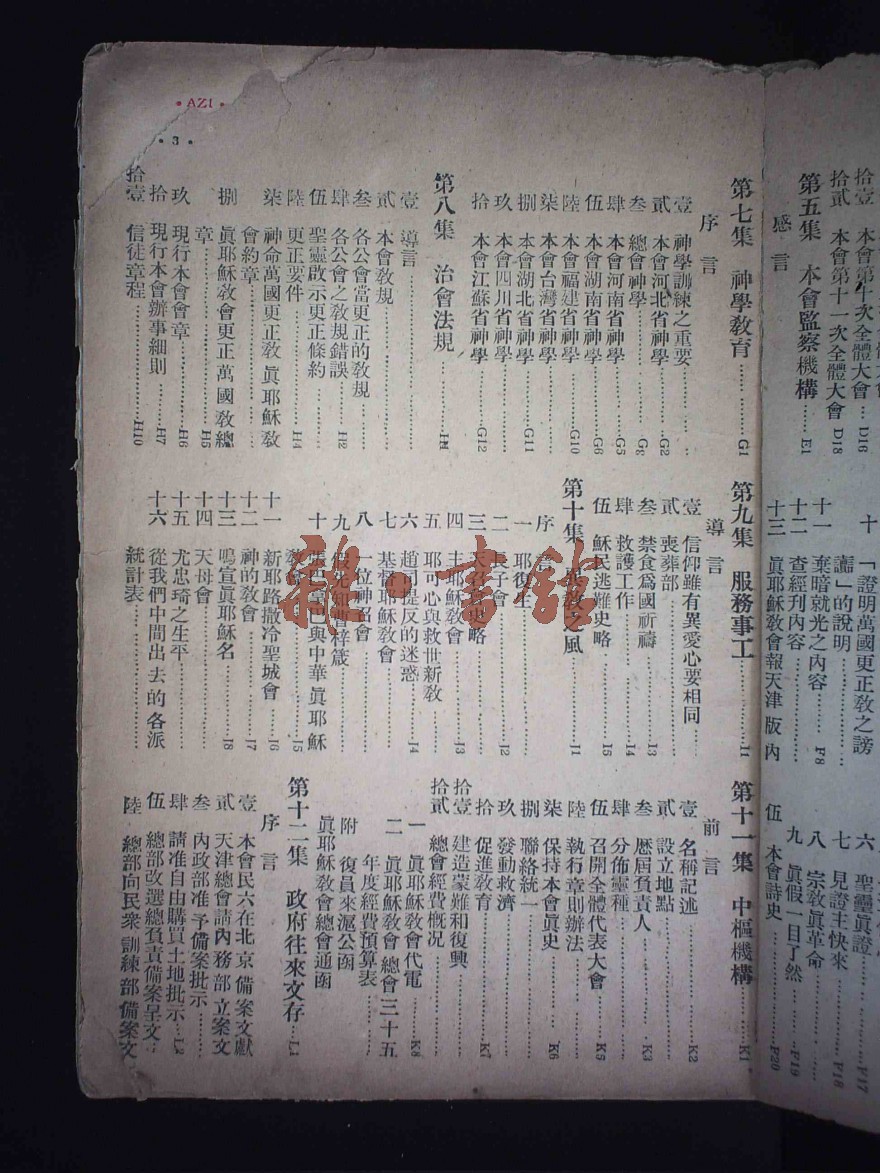 •AZ1•
•3•
拾壹 本會第十次全體大會…D16
拾貳 本會第十一次全體大會 D18
第五集 本會監察機構……E1
感言
十
「證明萬國更正教之謗
讟」的說明
十一 棄暗就光之內容………F8
十二 查經刋內容
十三 眞耶穌敎會報天津版內
六 聖靈眞證………F17
七 見證主快來……F18
八 宗敎眞革命
九 眞假一目了然……F19
伍 本會詩史………F20
第七集 神學敎育………G1
序言
壹 神學訓練之重要
貳 本會河北省神學……G2
叁 總會神學
肆 本會河南省神學……G5
伍 本會湖南省神學……G6
陸 本會福建省神學……G10
柒 本會台灣省神學
捌 本會湖北省神學……G11
玖 本會四川省神學
拾 本會江蘇省神學……G12
第八集 治會法規……H1
壹 導言
貳 本會敎規
叁 各公會當更正的敎規
肆 各公會之敎規錯誤……H2
伍 聖靈啟示更正條約
陸 更正要件……H4
柒 神命萬國更正敎 眞耶穌敎
會約章
捌 眞耶穌敎會更正萬國敎總
章……H5
玖 現行本會會章……H6
拾 現行本會辦事細則……H7
拾壹 信徒章程……H10
第九集 服務事工……I1
導言
壹 信仰雖有異愛心要相同
貳 喪葬部
叁 禁食爲國祈禱……I3
肆 救護工作……I4
伍 穌民逃難史略……I5
第十集 異敎之風……I1
序言
一 耶復生
二 長子會……I2
三 天召會史略
四 主耶穌敎會……I3
五 耶可心與救世新敎
六 趙同提反的迷惑……I4
七 基督耶穌敎會
八 一位神召會
九 假先知曹梓箴
十 張巴拿巴與中華眞耶穌
敎會……I5
十一 新耶路撒冷聖城會……I6
十二 神的敎會……I7
十三 鳴宣眞耶穌名……I8
十四 天母會
十五 尤忠琦之生平
十六 從我們中間出去的各派
統計表
第十一集 中樞機構……K1
前言
壹 名稱記述……K2
貳 設立地點
叁 歷屆負責人……K3
肆 分佈靈種
伍 召開全體代表大會……K5
陸 執行章則辦法
柒 保持本會眞史……K6
捌 聯絡統一
玖 發動救濟
拾 促進敎育……K7
拾壹 建造蒙難和復興
拾貳 總會經費概况
一 眞耶穌敎會代電……K8
二 眞耶穌敎會總會三十五
年度經費預算表
附 復員來滬公函
眞耶穌敎會總會通函
第十二集 政府往來文存……L1
序言
壹 本會民六在北京備案文獻
貳 天津總會請內務部立案文
叁 內政部准予備案批示
肆 請准自由購買土地批示…L2
伍 總部改選總負責備案呈文
陸 總部向民衆訓練部備案文
雜·書館